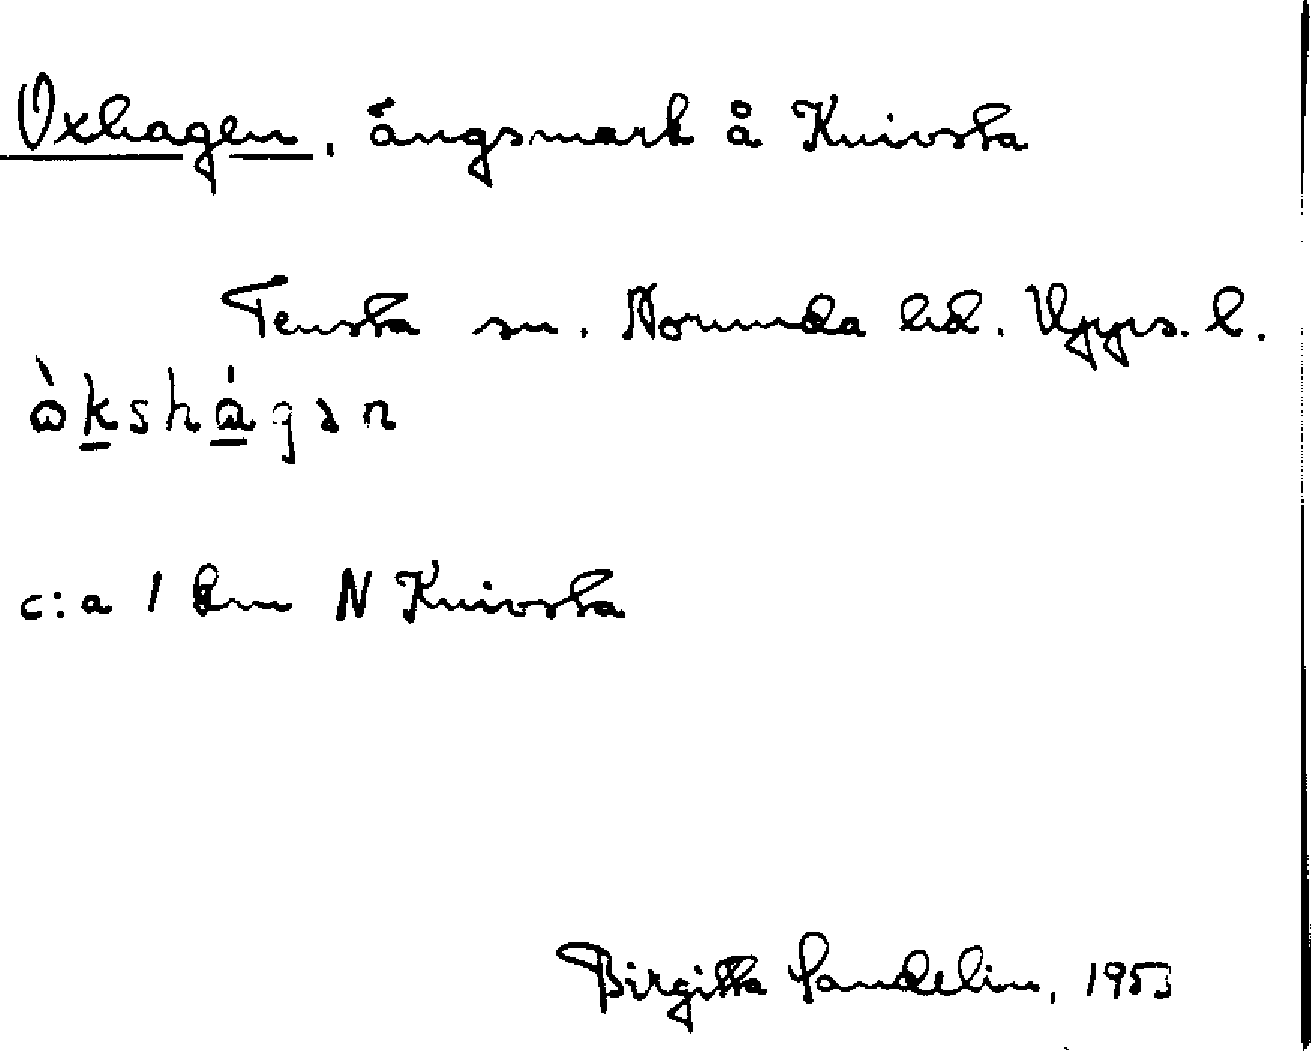 Oxhagen, ängsmark å Knivsta
Tensta sn. Norunda hd. Upps. l.
ὼkshágən
c:a 1 km N Knivsta
Birgitta Sandelin, 1953